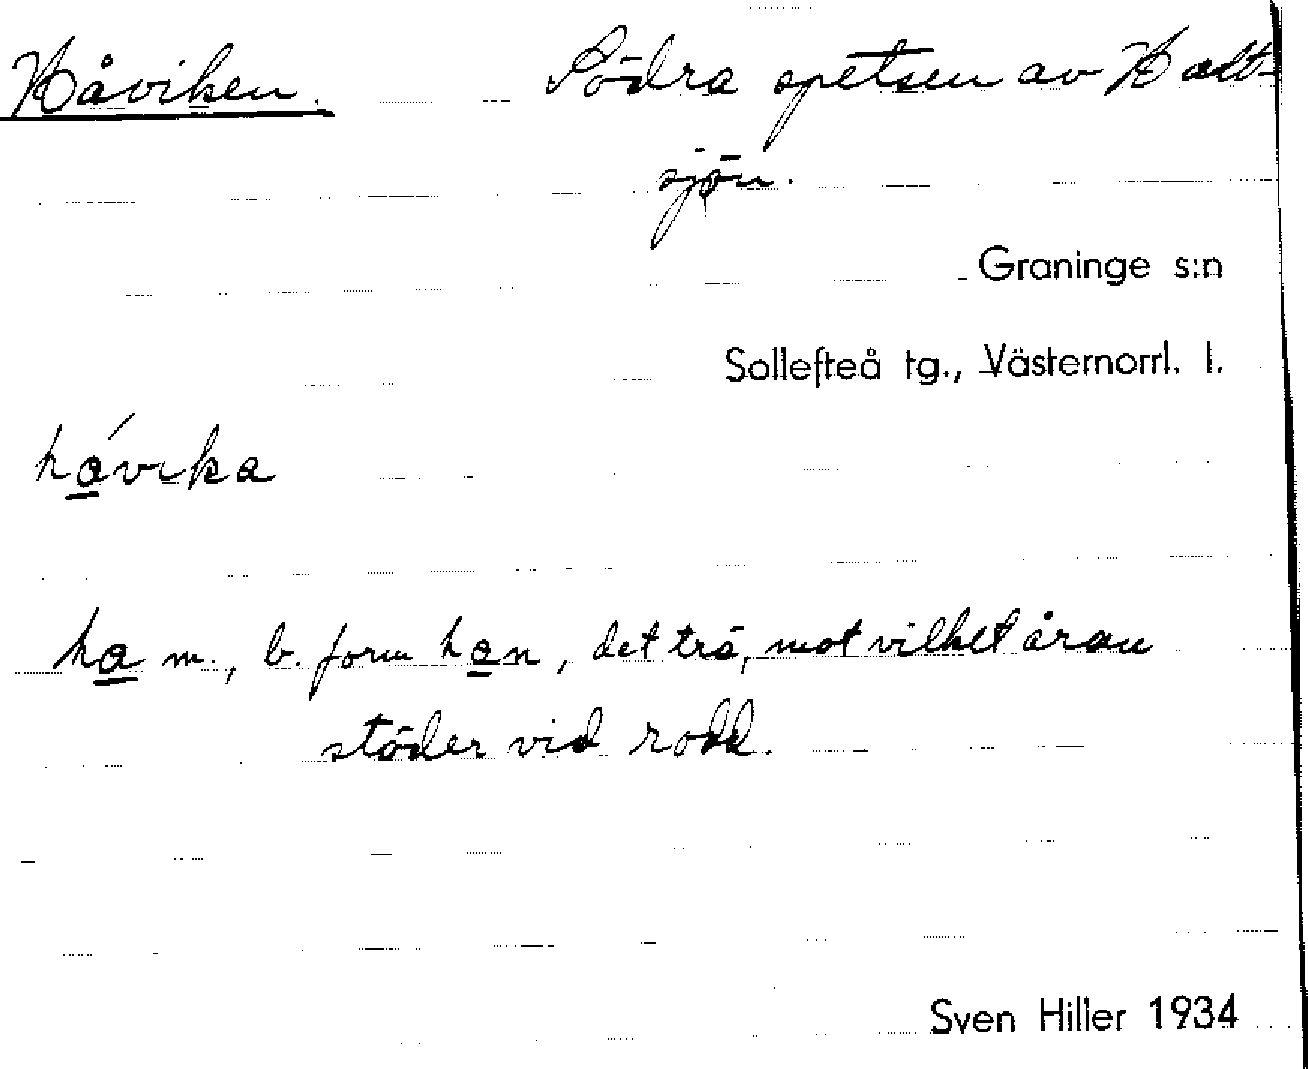 Håviken. Södra spetsen av Hælt-
sjön.
Graninge s:n
Sollefteå tg., Västernorrl. l.
há̲vika
ha̲ m., b. form ha̲n, det trä, mot vilket åran
stöder vid rodd.
Sven Hiller 1934